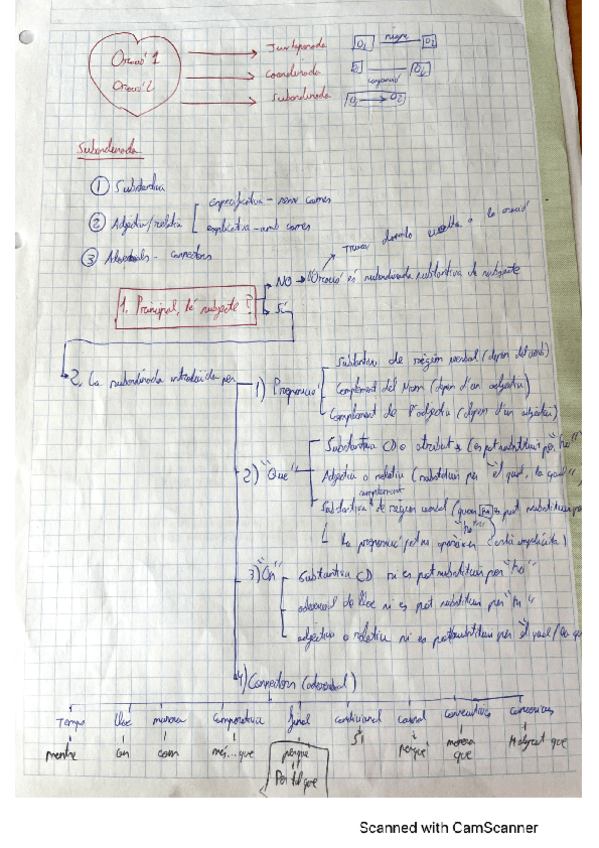 Oració 1
Oració 2
Juxtaposada
Coordinada
Subordinada
O1
O2
O1 O2
Subordinada
1 Substantiva
2 Adjectiva/relativa
especificativa - sense comes
explicativa - amb comes
3 Adverbials - connectors
1. Principal, té subjecte?
NO → Oració és subordinada substantiva de subjecte
dando vuelta a la oració
SÍ
2. La subordinada introduïda per
1) Preposició
Substantiva de règim verbal (depen del verb)
Complement del Nom (depen d'un adjectiu)
Complement de l'adjectiu (depen d'un adjectiu)
2) "Que"
Substantiva CD o atribut → (es pot substituir per "ho")
Adjectiva o relativa (substituir per "el qual, la qual",
complement
Substantiva de règim verbal (quan no es pot substituir per
"ho"
la preposició pot no aparèixer (està implícita)
3) "On"
Substantiva CD si es pot substituir per "ho"
adverbial de lloc si es pot substituir per "hi"
adjectiva o relativa si es pot substituir per el qual/la qu
4) Connectors (adverbial)
Temps lloc manera comparativa final condicional causal consecutives concessives
mentre on com més...que perquè Si perquè manera que Malgrat que
Per tal que
Scanned with CamScanner